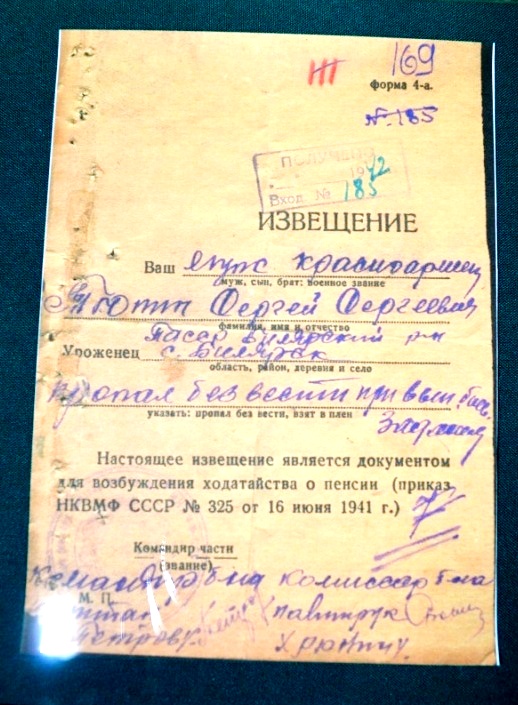 III
169
форма 4-а.
№ 185
ПОЛУЧЕНО
1942
Вход. № 185
ИЗВЕЩЕНИЕ
Ваш муж красноармеец
муж, сын, брат: военное звание
Сергей Сергеевич
фамилия, имя и отчество
Билярский р-н
Уроженец с. Билярск
область, район, деревня и село
пропал без вести при вып. боев.
указать: пропал без вести, взят в плен
задания
Настоящее извещение является документом
для возбуждения ходатайства о пенсии (приказ
НКВМФ СССР № 325 от 16 июня 1941 г.)
Командир части
(звание)
Командир б-на комиссар б-на
М. П.
капитан политрук
Петров